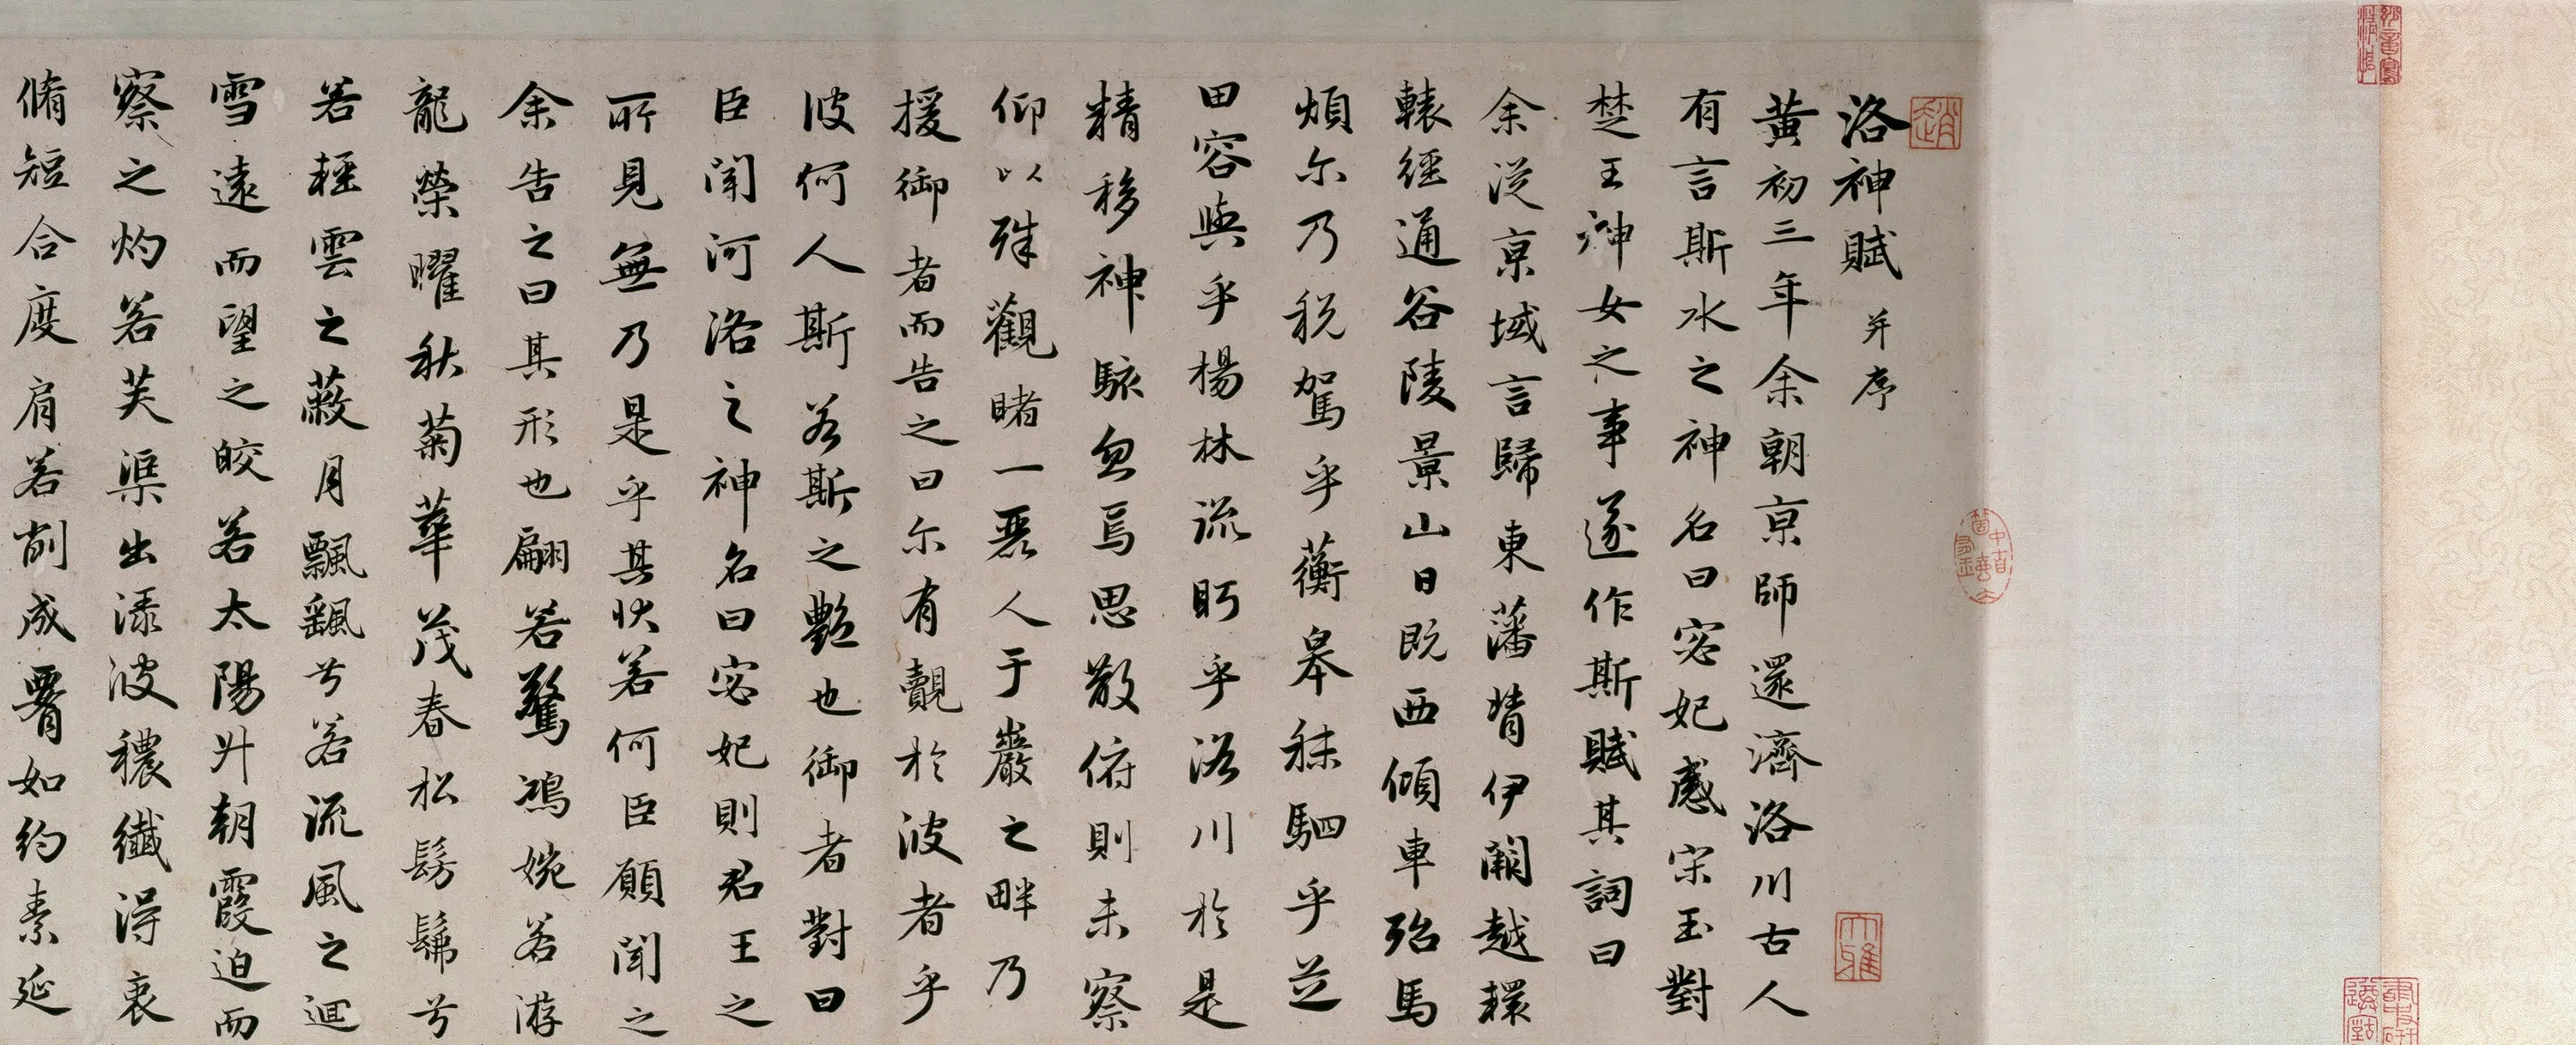 洛神賦 并序
黃初三年余朝京師還濟洛川古人
有言斯水之神名曰宓妃感宋玉對
楚王神女之事遂作斯賦其詞曰
余從京域言歸東藩背伊闕越轘
轅經通谷陵景山日既西傾車殆馬
煩尔乃税駕乎蘅皋秣駟乎芝
田容與乎楊林流眄乎洛川於是
精移神駭忽焉思散俯則未察
仰以殊觀睹一麗人于巖之畔乃
援御者而告之曰尔有覿於彼者乎
彼何人斯若斯之艷也御者對曰
臣聞河洛之神名曰宓妃則君王之
所見無乃是乎其狀若何臣願聞之
余告之曰其形也翩若驚鴻婉若游
龍榮曜秋菊華茂春松髣髴兮
若輕雲之蔽月飄颻兮若流風之迴
雪遠而望之皎若太陽升朝霞迫而
察之灼若芙渠出淥波穠纖得衷
脩短合度肩若削成腰如約素延
趙
大雅